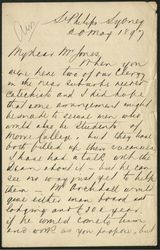 St Philip's Sydney
20 May 1897
My dear Mr Jones
When you
were here two of our Clergy
in the near suburbs needed
Catechists and I did hope
that some arrangement might
be made to secure men who
would also be students of
Moore College - but they have
both filled up their vacancies
I have had a talk with the
Dean about it - but he can
see no way just yet to help
them - Mr Archdall would
give either man board and
lodging and £ 10 a year
if he would come to him
and work as you propose, but